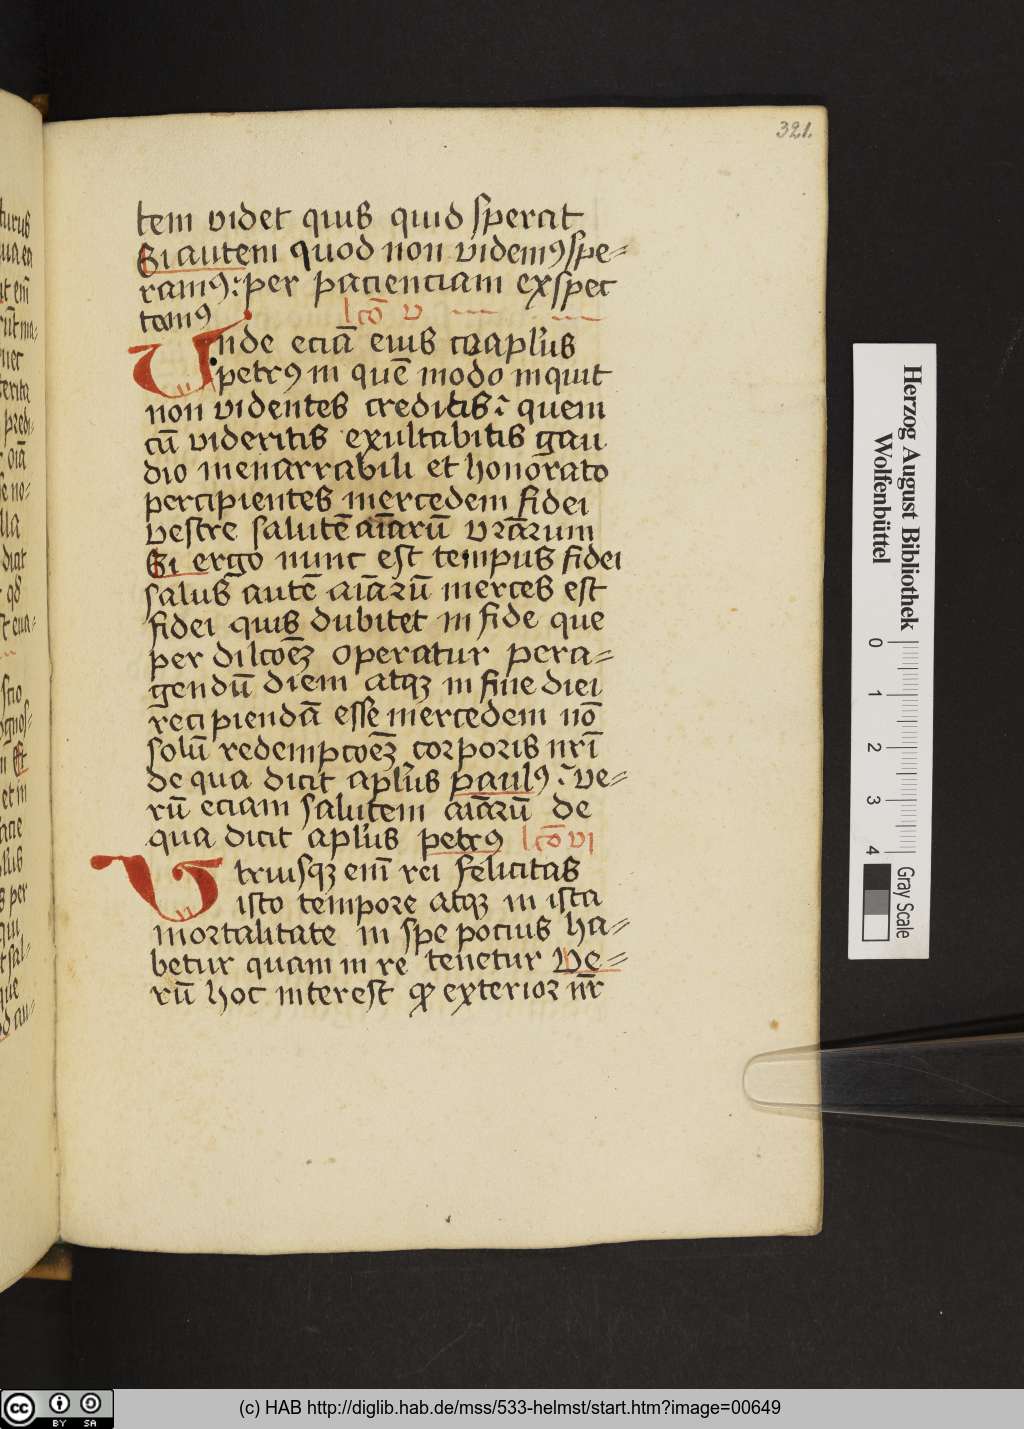 321.
tem videt quis quid sperat
Si autem quod non videmꝰ spe⸗
ramꝰ: per pacienciam exspec
tamꝰ lcō v
Unde eciā eius coapl'us
petrꝰ in quē modo inquit
non videntes creditis: quem
cū videritis exultabitis gau
dio inenarrabili et honorato
percipientes mercedem fidei
vestre salutē aīarū vr̄arum
Si ergo nunc est tempus fidei
salus autē aīarū merces est
fidei quis dubitet in fide que
per dilcōeꝫ operatur pera⸗
gendū diem atqꝫ in fine diei
recipiendā esse mercedem nō
solū redempcōeꝫ corporis nr̄i
de qua dicit apl'us paulꝰ : ve⸗
rū eciam salutem aīarū de
qua dicit apl'us petrꝰ lcō vi
Utriusqꝫ enī rei felicitas
isto tempore atqꝫ in ista
mortalitate in spe pocius ha⸗
betur quam in re tenetur Ve⸗
rū hoc interest ꝙ exterior nr̄
Herzog August Bibliothek
Wolfenbüttel
0 1 2 3 4
Gray Scale
BY SA
(c) HAB http://diglib.hab.de/mss/533-helmst/start.htm?image=00649